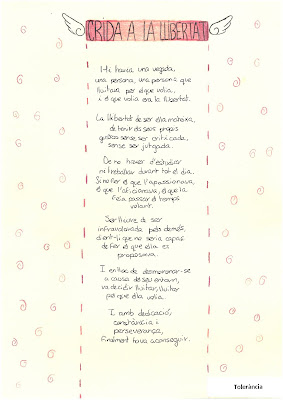 CRIDA A LA LLIBERTAT
Hi havia una vegada,
una persona, una persona que
lluitava per el que volia,
i el que volia era la llibertat.
La llibertat de ser ella mateixa,
de tenir els seus propis
gustos sense ser criticada,
sense ser jutgada.
De no haver d'estudiar
ni treballar durant tot el dia,
sino fer el que l'apassionava,
el que l'aficionava, el que la
feia passar el temps
volant.
Ser lliure de ser
infravalorada pels demés,
dient-li que no seria capaç
de fer el que ella es
proposava.
I enlloc de desmoronar-se
a causa de seu entorn,
va decidir lluitar, lluitar
pel que ella volia.
I amb dedicació,
constància i
perseverança,
finalment ho va aconseguir.
Tolerància